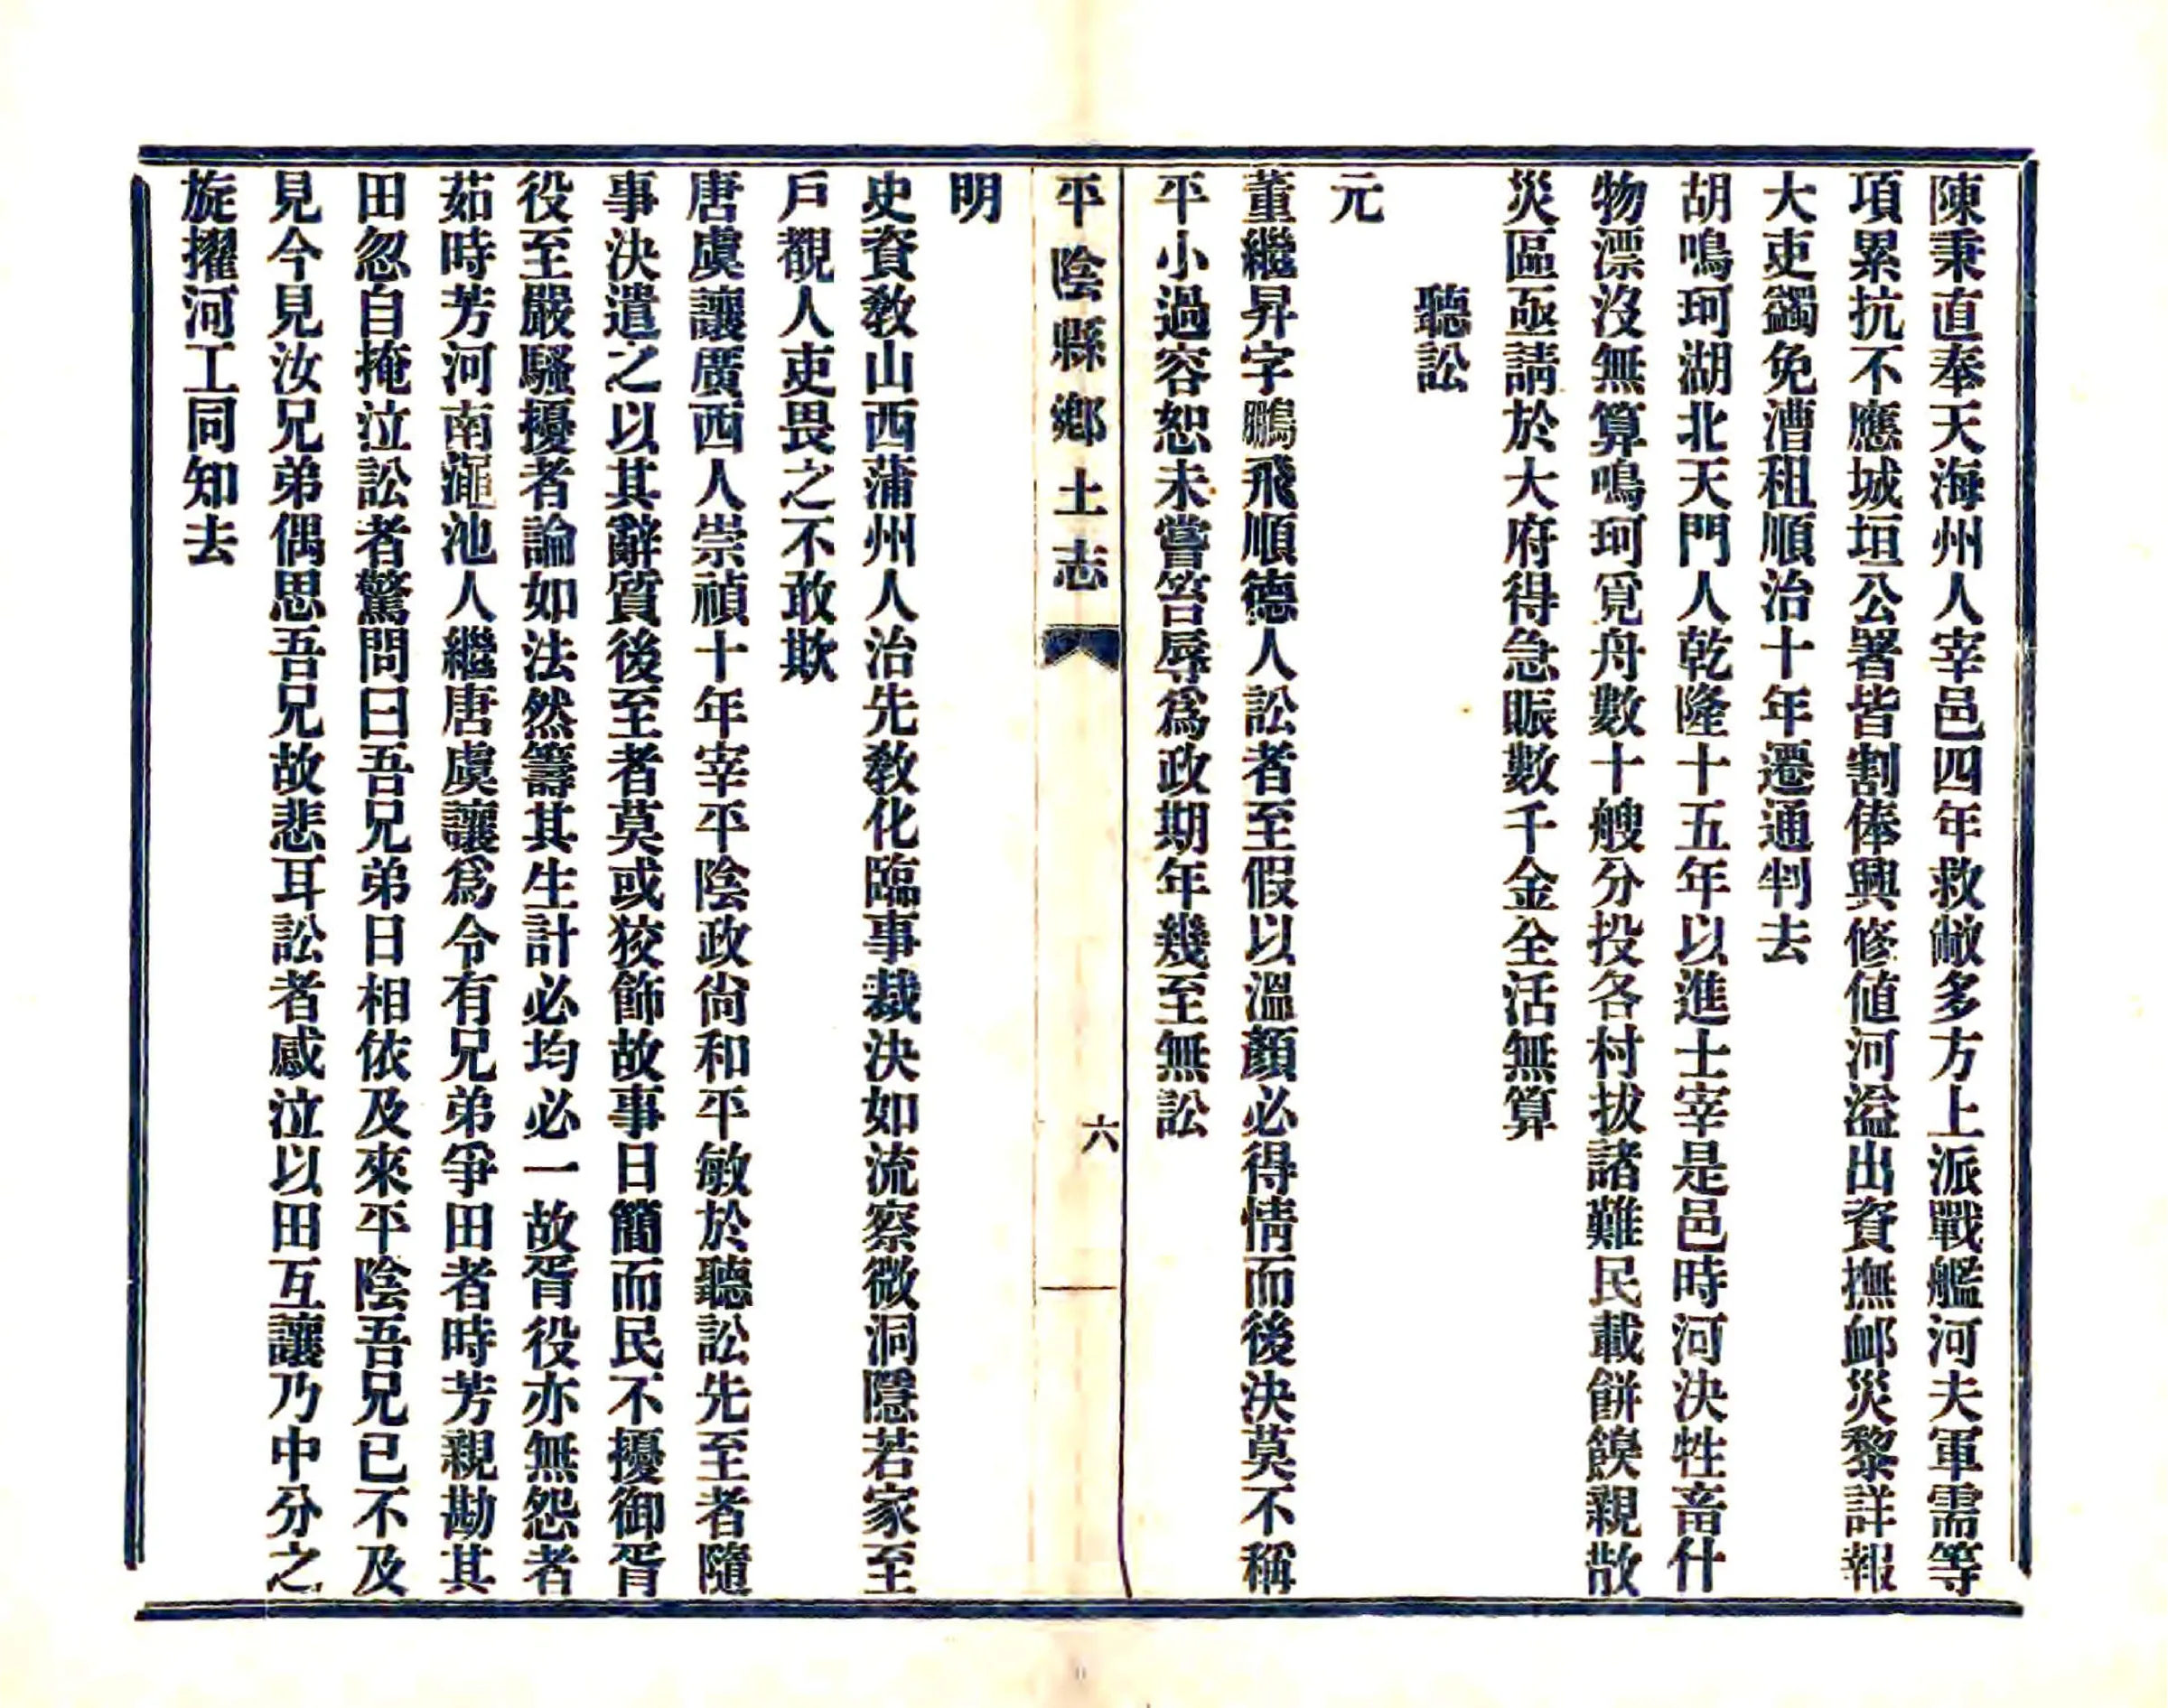 陳秉直奉天海州人宰邑四年救敝多方上派戰艦河夫軍需等
項累抗不應城垣公署皆割俸興修値河溢出資撫䘏災黎詳報
大吏蠲免漕租順治十年遷通判去
胡鳴珂湖北天門人乾隆十五年以進士宰是邑時河決牲畜什
物漂沒無算鳴珂覓舟數十艘分投各村拔諸難民載餅餱親散
災區亟請於大府得急賑數千金全活無算
聽訟
元
董繼昇字鵬飛順德人訟者至假以溫顏必得情而後決莫不稱
平小過容恕未嘗笞辱爲政期年幾至無訟
平陰縣鄉土志
六
明
史資敎山西蒲州人治先敎化臨事裁決如流察微洞隱若家至
戶覩人吏畏之不敢欺
唐虞讓廣西人崇禎十年宰平陰政尙和平敏於聽訟先至者隨
事決遣之以其辭質後至者莫或狡飾故事日簡而民不擾御胥
役至嚴騷擾者論如法然籌其生計必均必一故胥役亦無怨者
茹時芳河南澠池人繼唐虞讓爲令有兄弟爭田者時芳親勘其
田忽自掩泣訟者驚問曰吾兄弟日相依及來平陰吾兄已不及
見今見汝兄弟偶思吾兄故悲耳訟者感泣以田互讓乃中分之
旋擢河工同知去